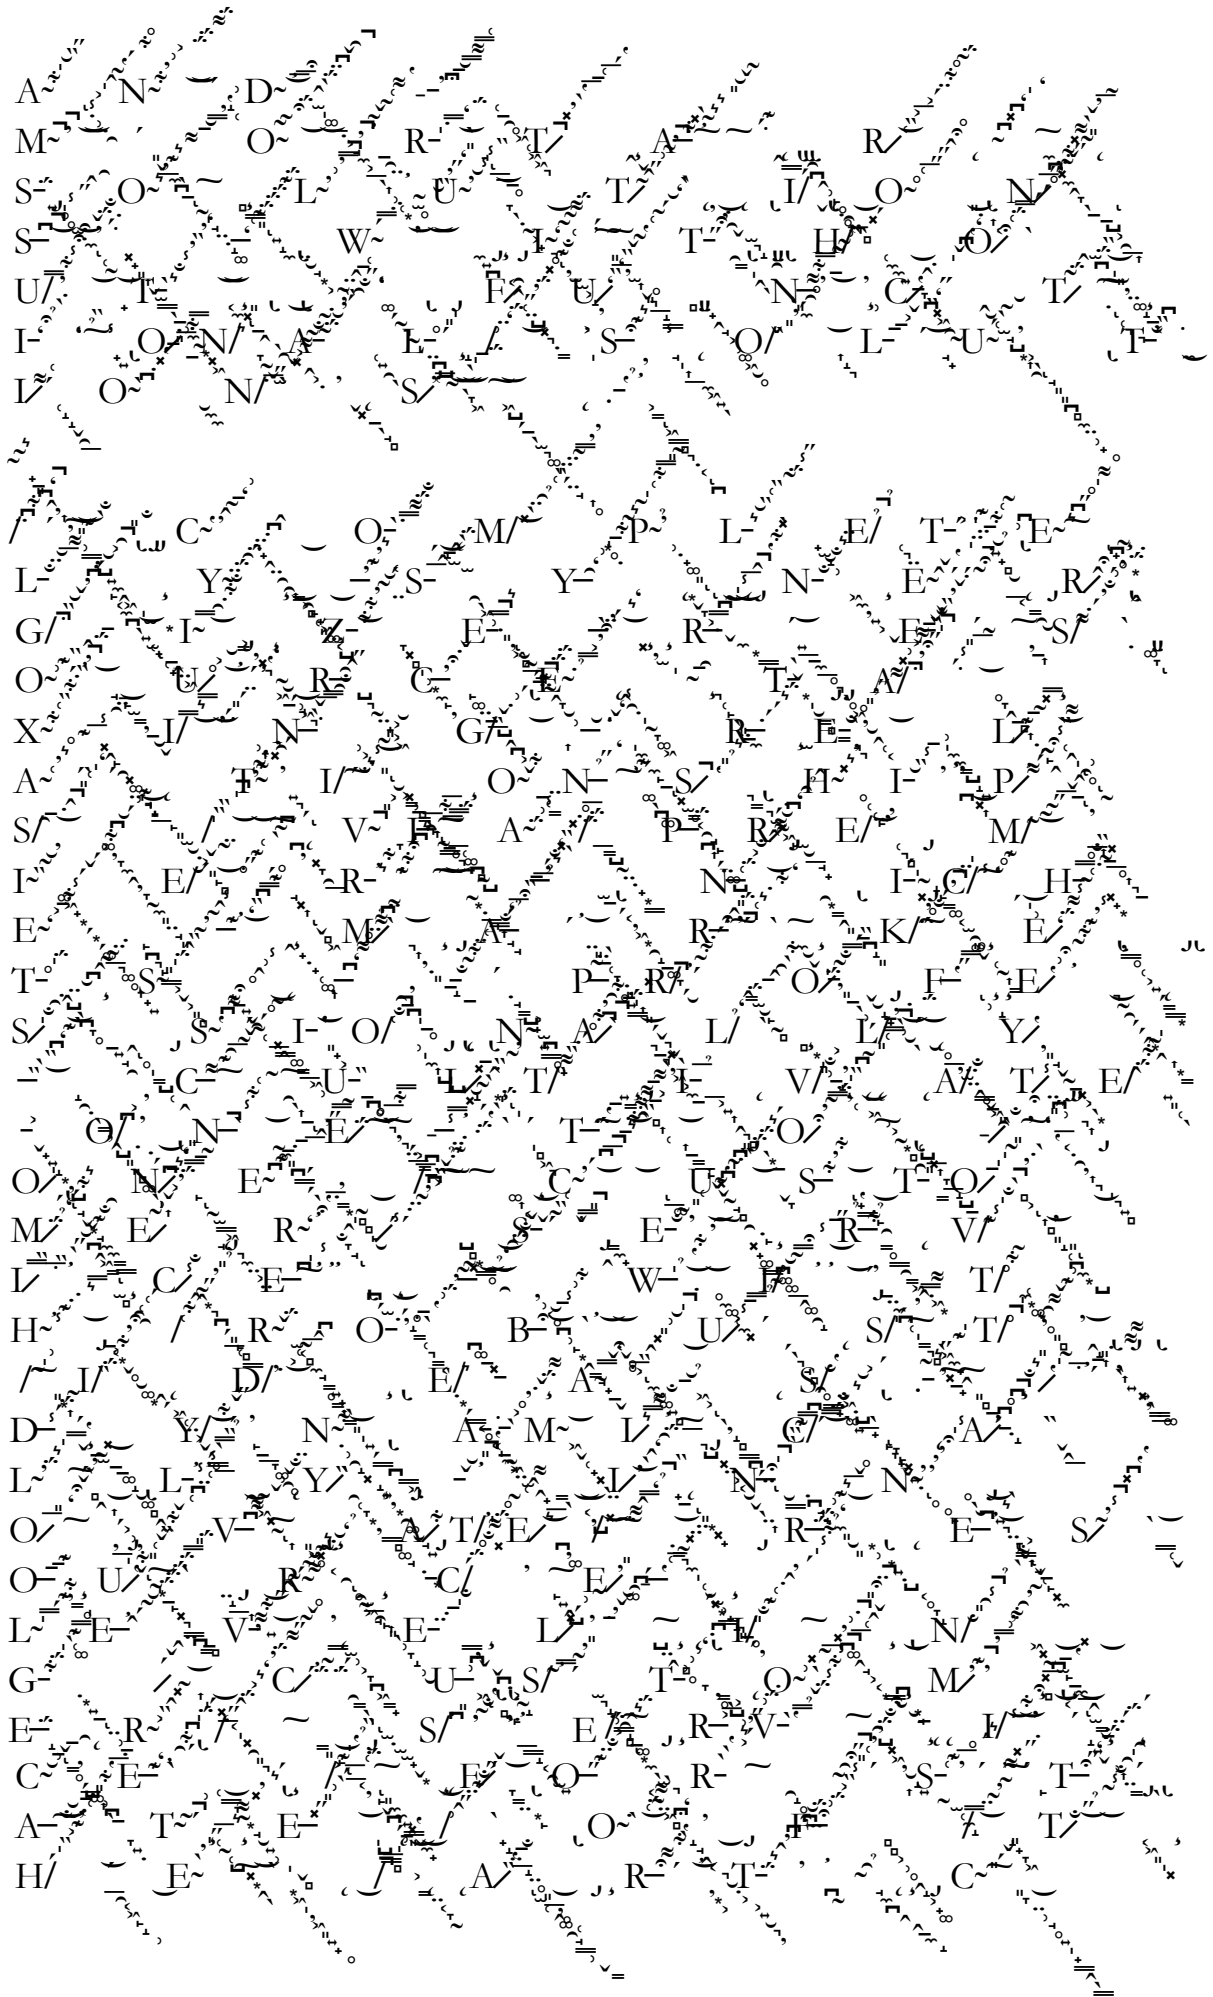 AND
MORTAR
SOLUTION
SWITHO
UTFUNCT
IONAL/SOLUT
IONS
/COMPLETE
LYSYNER
GIZERES
OURCETA
XINGREL
ATIONSHIP
S/VIA/PREM
IERNICH
EMARKE
TSPROFE
SSIONALLY
CULTIVATE
ONETO
ONE/CUSTO
MER/SERV
ICEWIT
H/ROBUST
/IDEAS/
DYNAMICA
LLYINN
OVATE/RES
OURCE
LEVELIN
G/CUSTOM
ER/SERVI
CE/FORST
ATE/OF/T
HE/ARTC